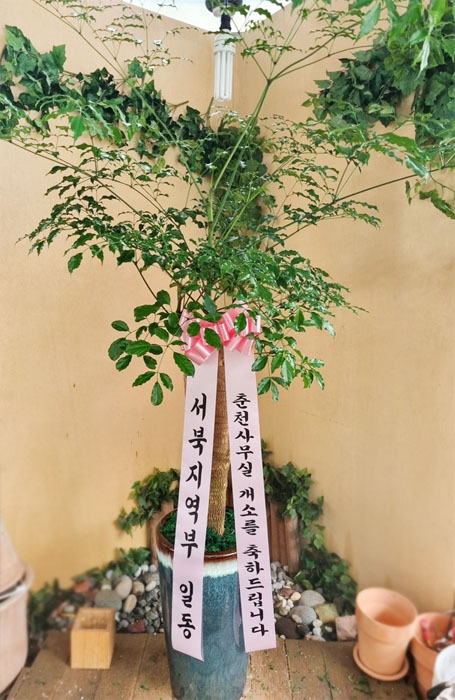 서북지역부 일동
춘천사무실 개소를 축하드립니다